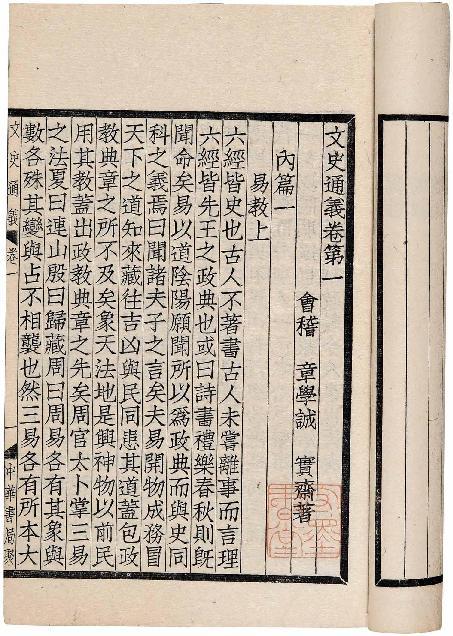 文史通義卷第一
會稽 章學誠 實齋著
內篇一
易教上
六經皆史也古人不著書古人未嘗離事而言理
六經皆先王之政典也或曰詩書禮樂春秋則既
聞命矣易以道陰陽願聞所以為政典而與史同
科之義焉曰聞諸夫子之言矣夫易開物成務冒
天下之道知來藏往吉凶與民同患其道蓋包政
教典章之所不及矣象天法地是興神物以前民
用其教蓋出政教典章之先矣周官太卜掌三易
之法夏曰連山殷曰歸藏周曰周易各有其象與
數各殊其變與占不相襲也然三易各有所本大
文史通義 卷一
中華書局聚